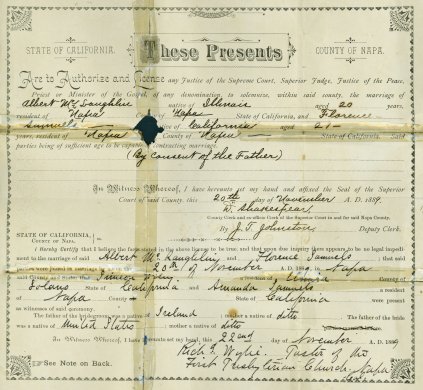 These Presents
STATE OF CALIFORNIA. COUNTY OF NAPA.
Are to Authorize and License any Justice of the Supreme Court, Superior Judge, Justice of the Peace,
Priest or Minister of the Gospel, of any denomination, to solemnize, within said county, the marriage of
Albert McLaughlin native of Illinois aged 20 years,
resident of Napa County of Napa State of California, and Florence
Samuels native of California aged 21
years, resident of Napa County of Napa State of California. Said
parties being of sufficient age to be capable of contracting marriage.
(By Consent of the Father)
In Witness Whereof, I have hereunto set my hand and affixed the Seal of the Superior
Court of said County, this 20th day of November A. D. 1889.
D. Shakespear,
County Clerk and ex-officio Clerk of the Superior Court in and for said Napa County.
By J. T. Johnston Deputy Clerk.
STATE OF CALIFORNIA
COUNTY OF NAPA.
I Hereby Certify that I believe the facts in the above license to be true; and that upon due inquiry there appears to be no legal impediment
to the marriage of said Albert McLaughlin and Florence Samuels
that said parties were joined in marriage by me on the 20th of November A. D. 1889, in Napa
County and State; that James County of
Solano State of California and Amanda Samuels a resident
of Napa County State of California were present
as witnesses of said ceremony.
The father of the bridegroom was a native of Ireland mother a native of ditto The father of the bride
was a native of United States mother a native of ditto
In Witness Whereof, I have hereunto set my hand, this 22nd day of November A. D. 1889
Rich'd Wylie. Pastor of the
First Presbyterian Church, Napa
See Note on Back.